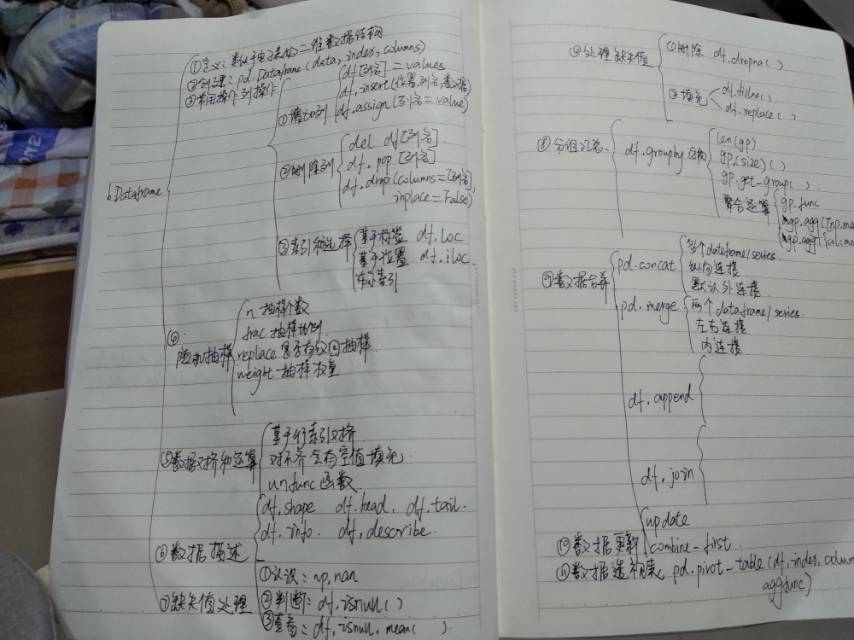 6.Dataframe
①定义：类似于电子表的二维数据结构
②创建：pd.Dataframe(data, index, columns)
③常用操作 列操作
①增加列
df[列名] = values
df.insert(位置,列名,数据)
df.assign(列名=value)
②删除列
del df[列名]
df.pop[列名]
df.drop(columns=[列名],
inplace=False)
③索引和选择
基于标签 df.loc
基于位置 df.iloc
布尔索引
随机抽样
n 抽样个数
frac 抽样比例
replace 是否有放回抽样
weight-抽样权重
⑤数据对齐和运算
基于行索引对齐
对不齐会有空值填充
unfunc函数
⑥数据描述
df.shape df.head. df.tail.
df.info. df.describe.
⑦缺失值处理
①认识：np.nan
②判断：df.isnull()
③查看：df.isnull.mean().
④处理缺失值
①删除 df.dropna()
②填充
df.fillna()
df.replace()
⑧分组汇总
df.groupby
len(gp)
gp.(size)()
gp.get-group()
聚合运算
gp.func
gp.agg([np.me
gp.agg({
⑨数据合并
pd.concat
多个dataframe/series.
纵向连接
默认外连接
pd.merge
两个dataframe/series
左右连接
内连接
df.append
df.join
⑩数据更新
update
combine-first
⑪数据透视表 pd.pivot-table(df, index, colum
aggfunc)